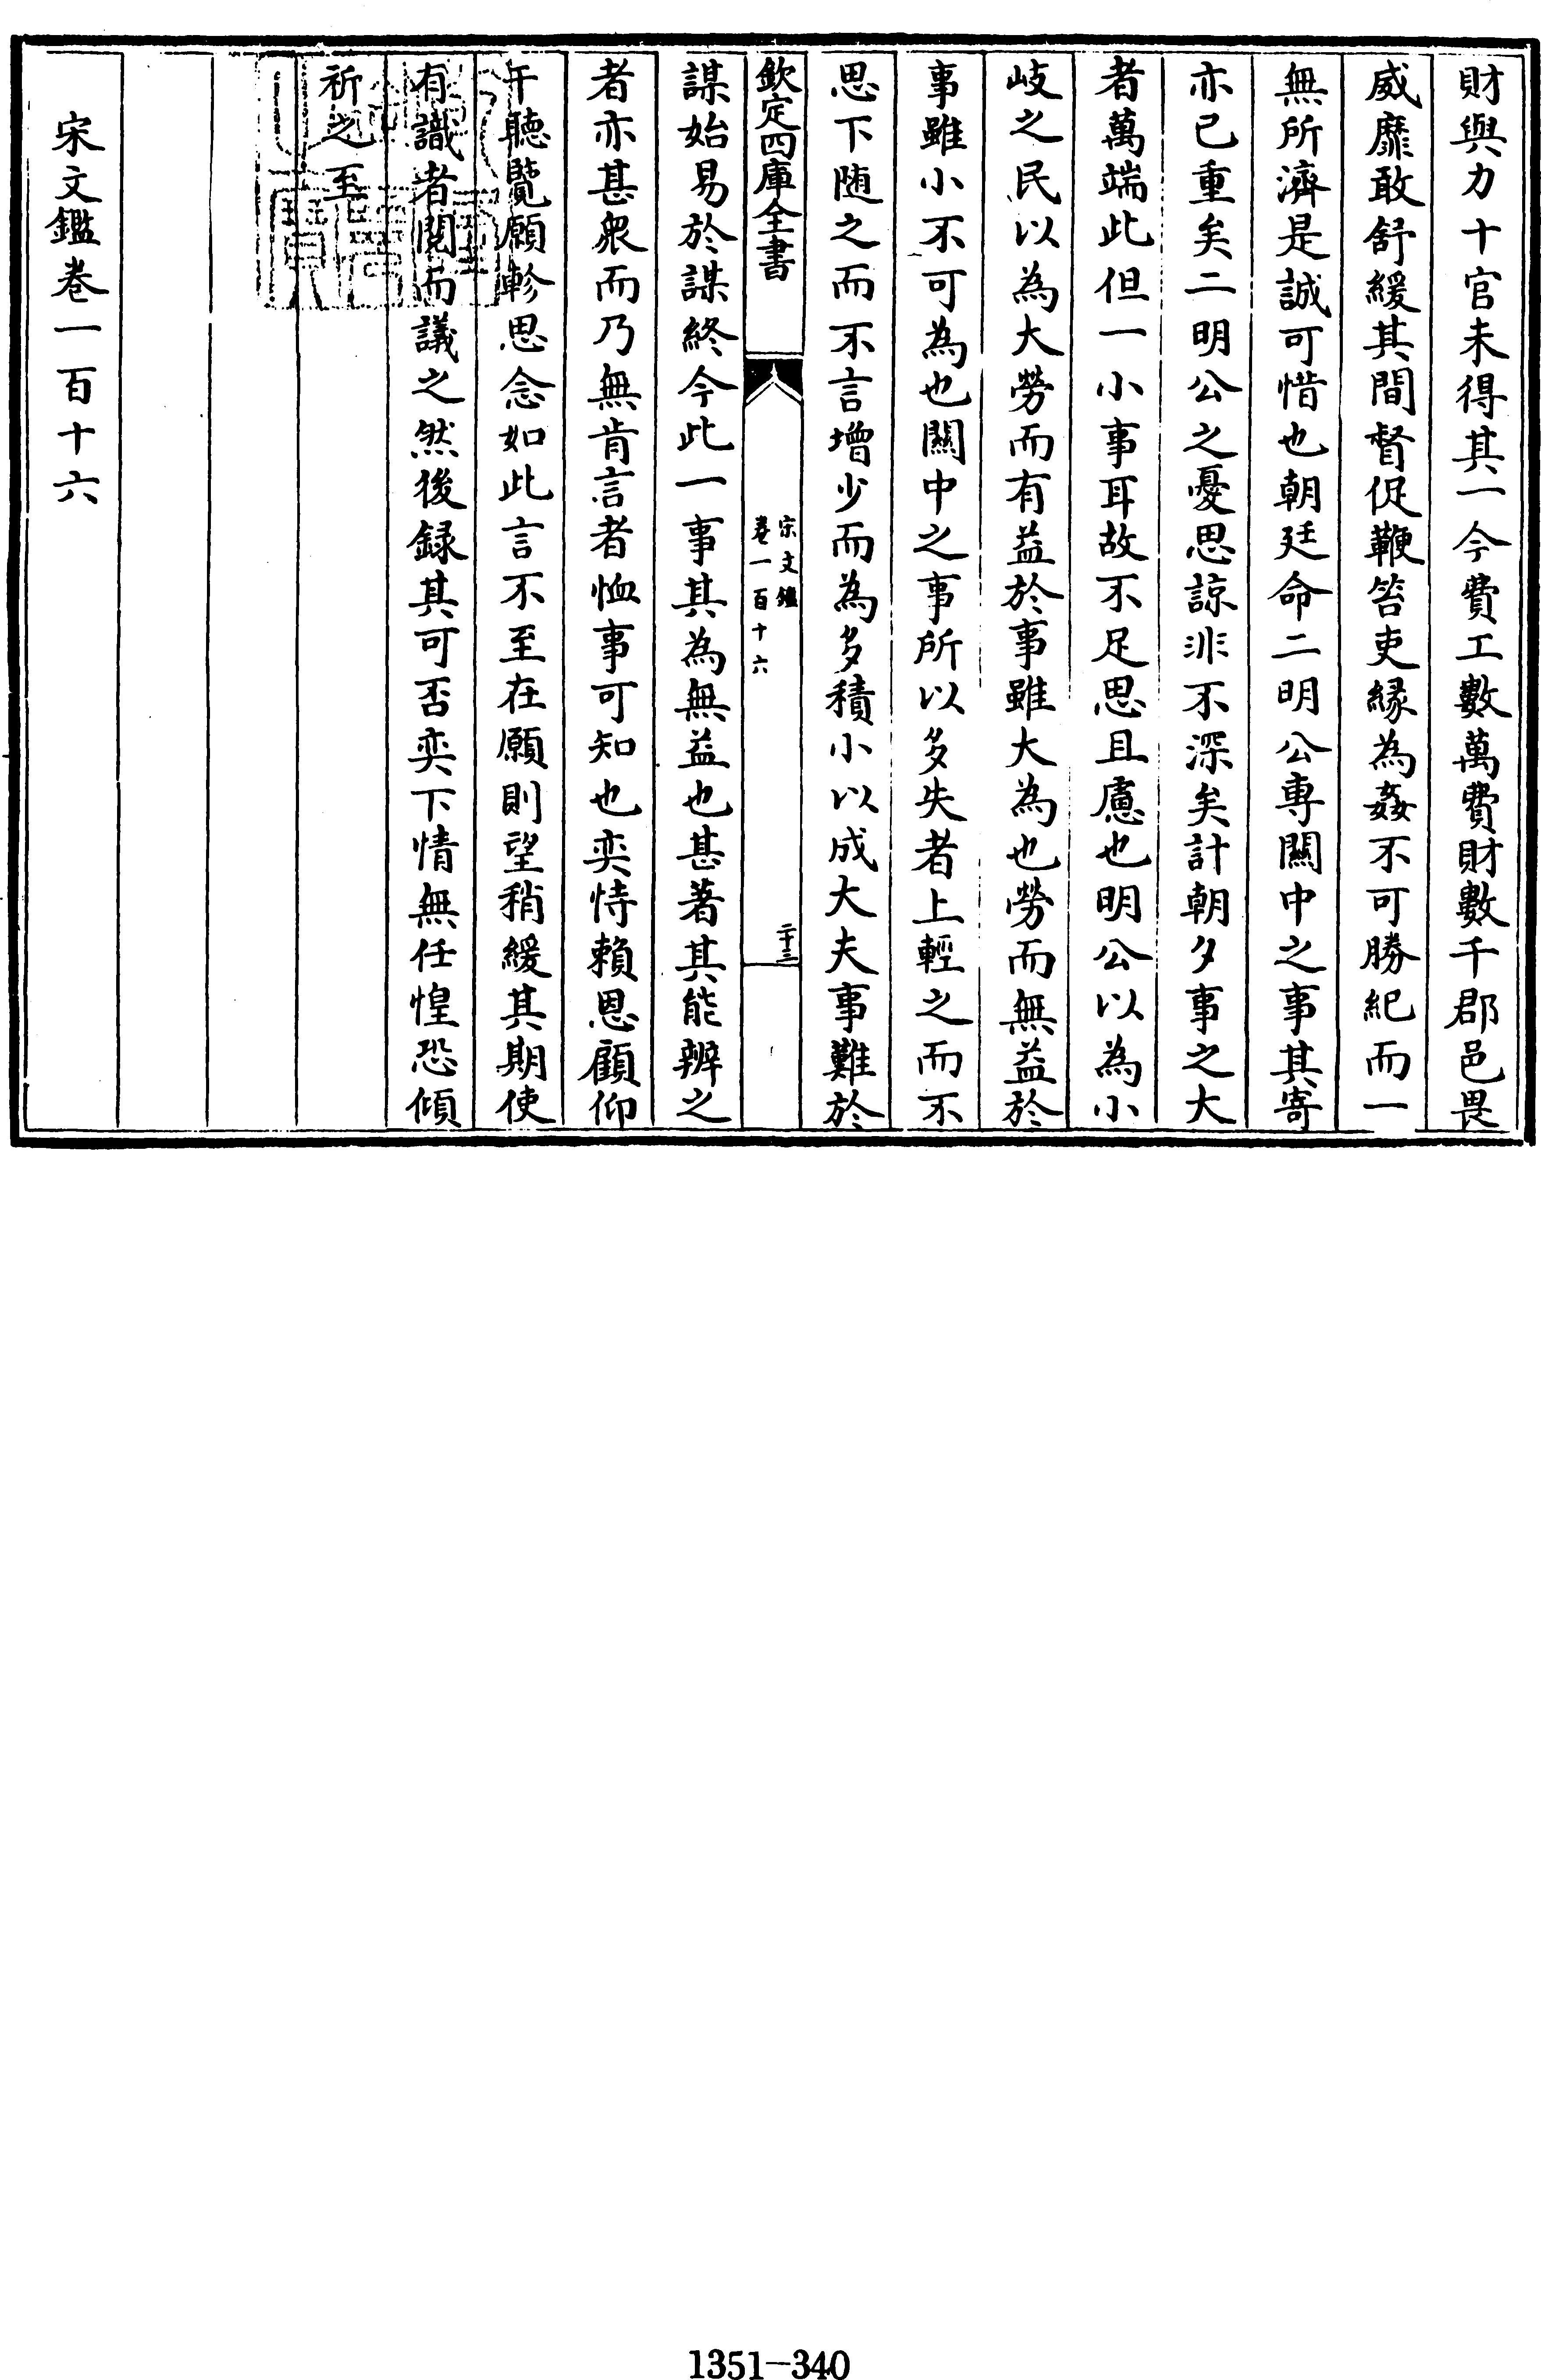 財與力十官未得其一今費工數萬費財數千郡邑畏
威靡敢舒緩其間督促鞭笞吏緣為姦不可勝紀而一
無所濟是誠可惜也朝廷命二明公專關中之事其寄
亦已重矣二明公之憂思諒非不深矣計朝夕事之大
者萬端此但一小事耳故不足思且慮也明公以為小
岐之民以為大勞而有益於事雖大為也勞而無益於
事雖小不可為也關中之事所以多失者上輕之而不
思下随之而不言增少而為多積小以成大夫事難於
欽定四庫全書
宋文鑑
卷一百十六
二十三
謀始易於謀終今此一事其為無益也甚著其能辨之
者亦甚衆而乃無肯言者恤事可知也奕恃賴恩顧仰
干聽覽願軫思念如此言不至在願則望稍緩其期使
有識者閱而議之然後録其可否奕下情無任惶恐傾
祈之至
宋文鑑卷一百十六
1351-340